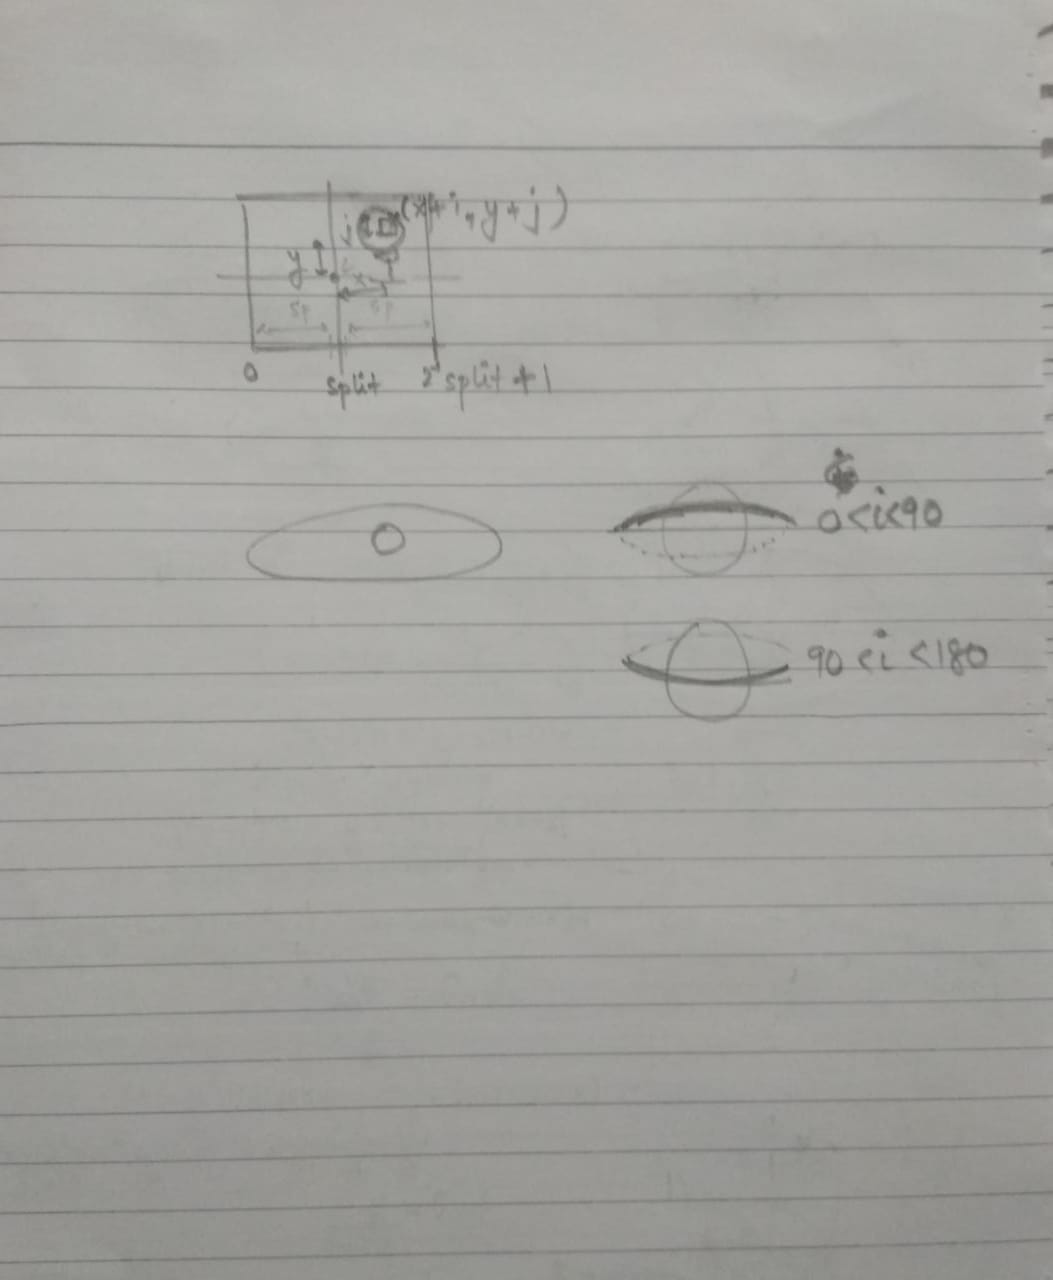 (x+i, y+j)
j
y
x
sp
sp
0
split
2*split+1
0<i<90
90<i<180